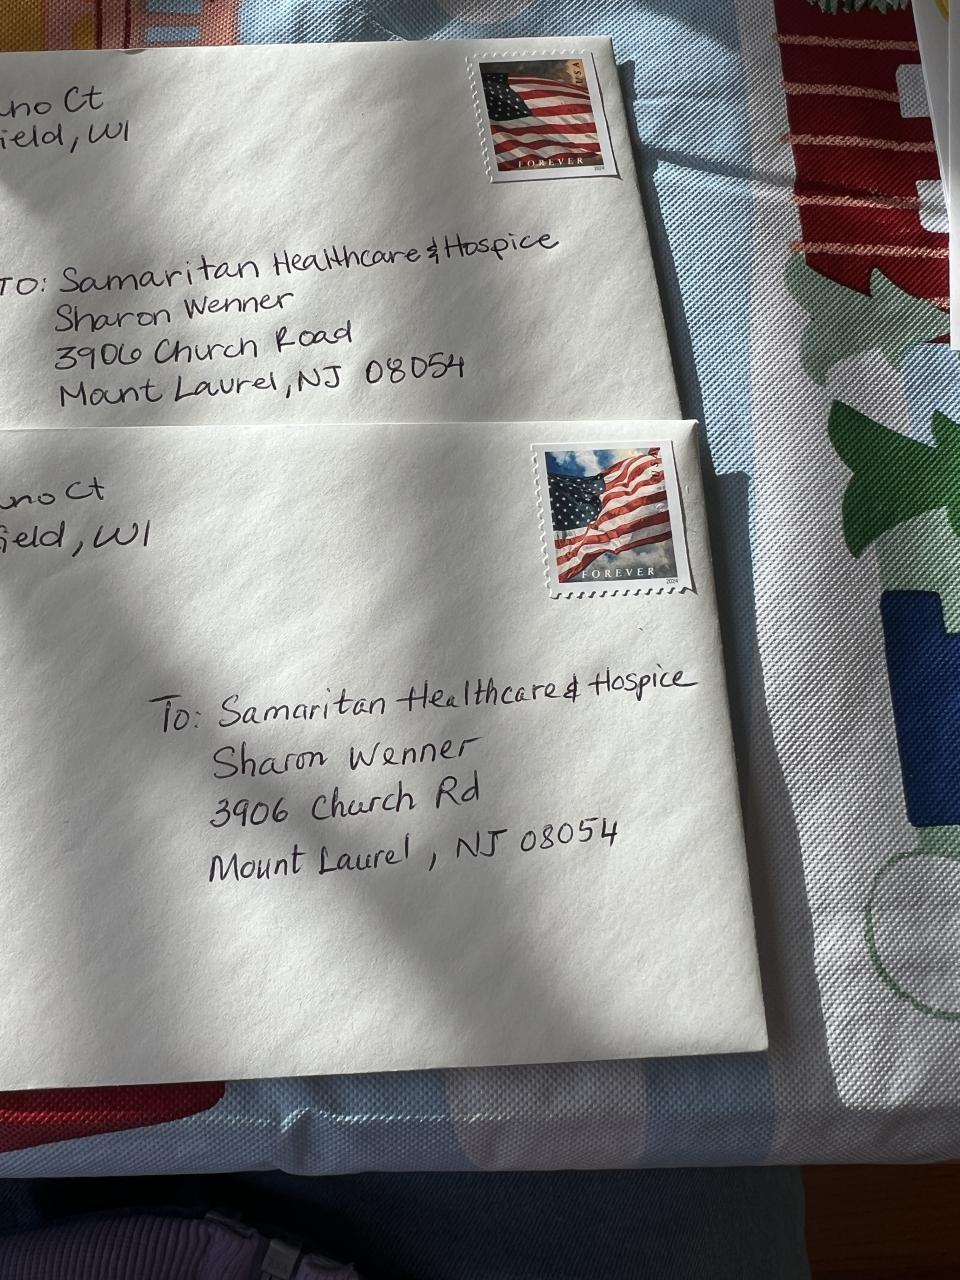 no Ct
ield, WI
USA
FOREVER
2024
TO: Samaritan Healthcare & Hospice
Sharon Wenner
3906 Church Road
Mount Laurel, NJ 08054
no Ct
ield, WI
FOREVER
2024
To: Samaritan Healthcare & Hospice
Sharon Wenner
3906 Church Rd
Mount Laurel, NJ 08054